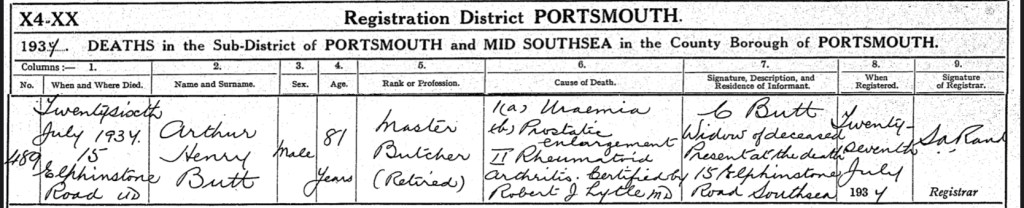 X4-XX Registration District PORTSMOUTH.
1934. DEATHS in the Sub-District of PORTSMOUTH and MID SOUTHSEA in the County Borough of PORTSMOUTH.
Columns:— 1. 2. 3. 4. 5. 6. 7. 8. 9.
No. When and Where Died. Name and Surname. Sex. Age. Rank or Profession. Cause of Death. Signature, Description, and Residence of Informant. When Registered. Signature of Registrar.
489
Twentysixth
July 1934
15
Elphinstone
Road UD
Arthur
Henry
Butt
Male
81
Years
Master
Butcher
(Retired)
I(a) Uraemia
(b) Prostatic
enlargement
II Rheumatoid
Arthritis. Certified by
Robert J Lytle MD
C Butt
Widow of deceased
Present at the death
15 Elphinstone
Road Southsea
Twenty-
Seventh
July
1934
Rand
Registrar